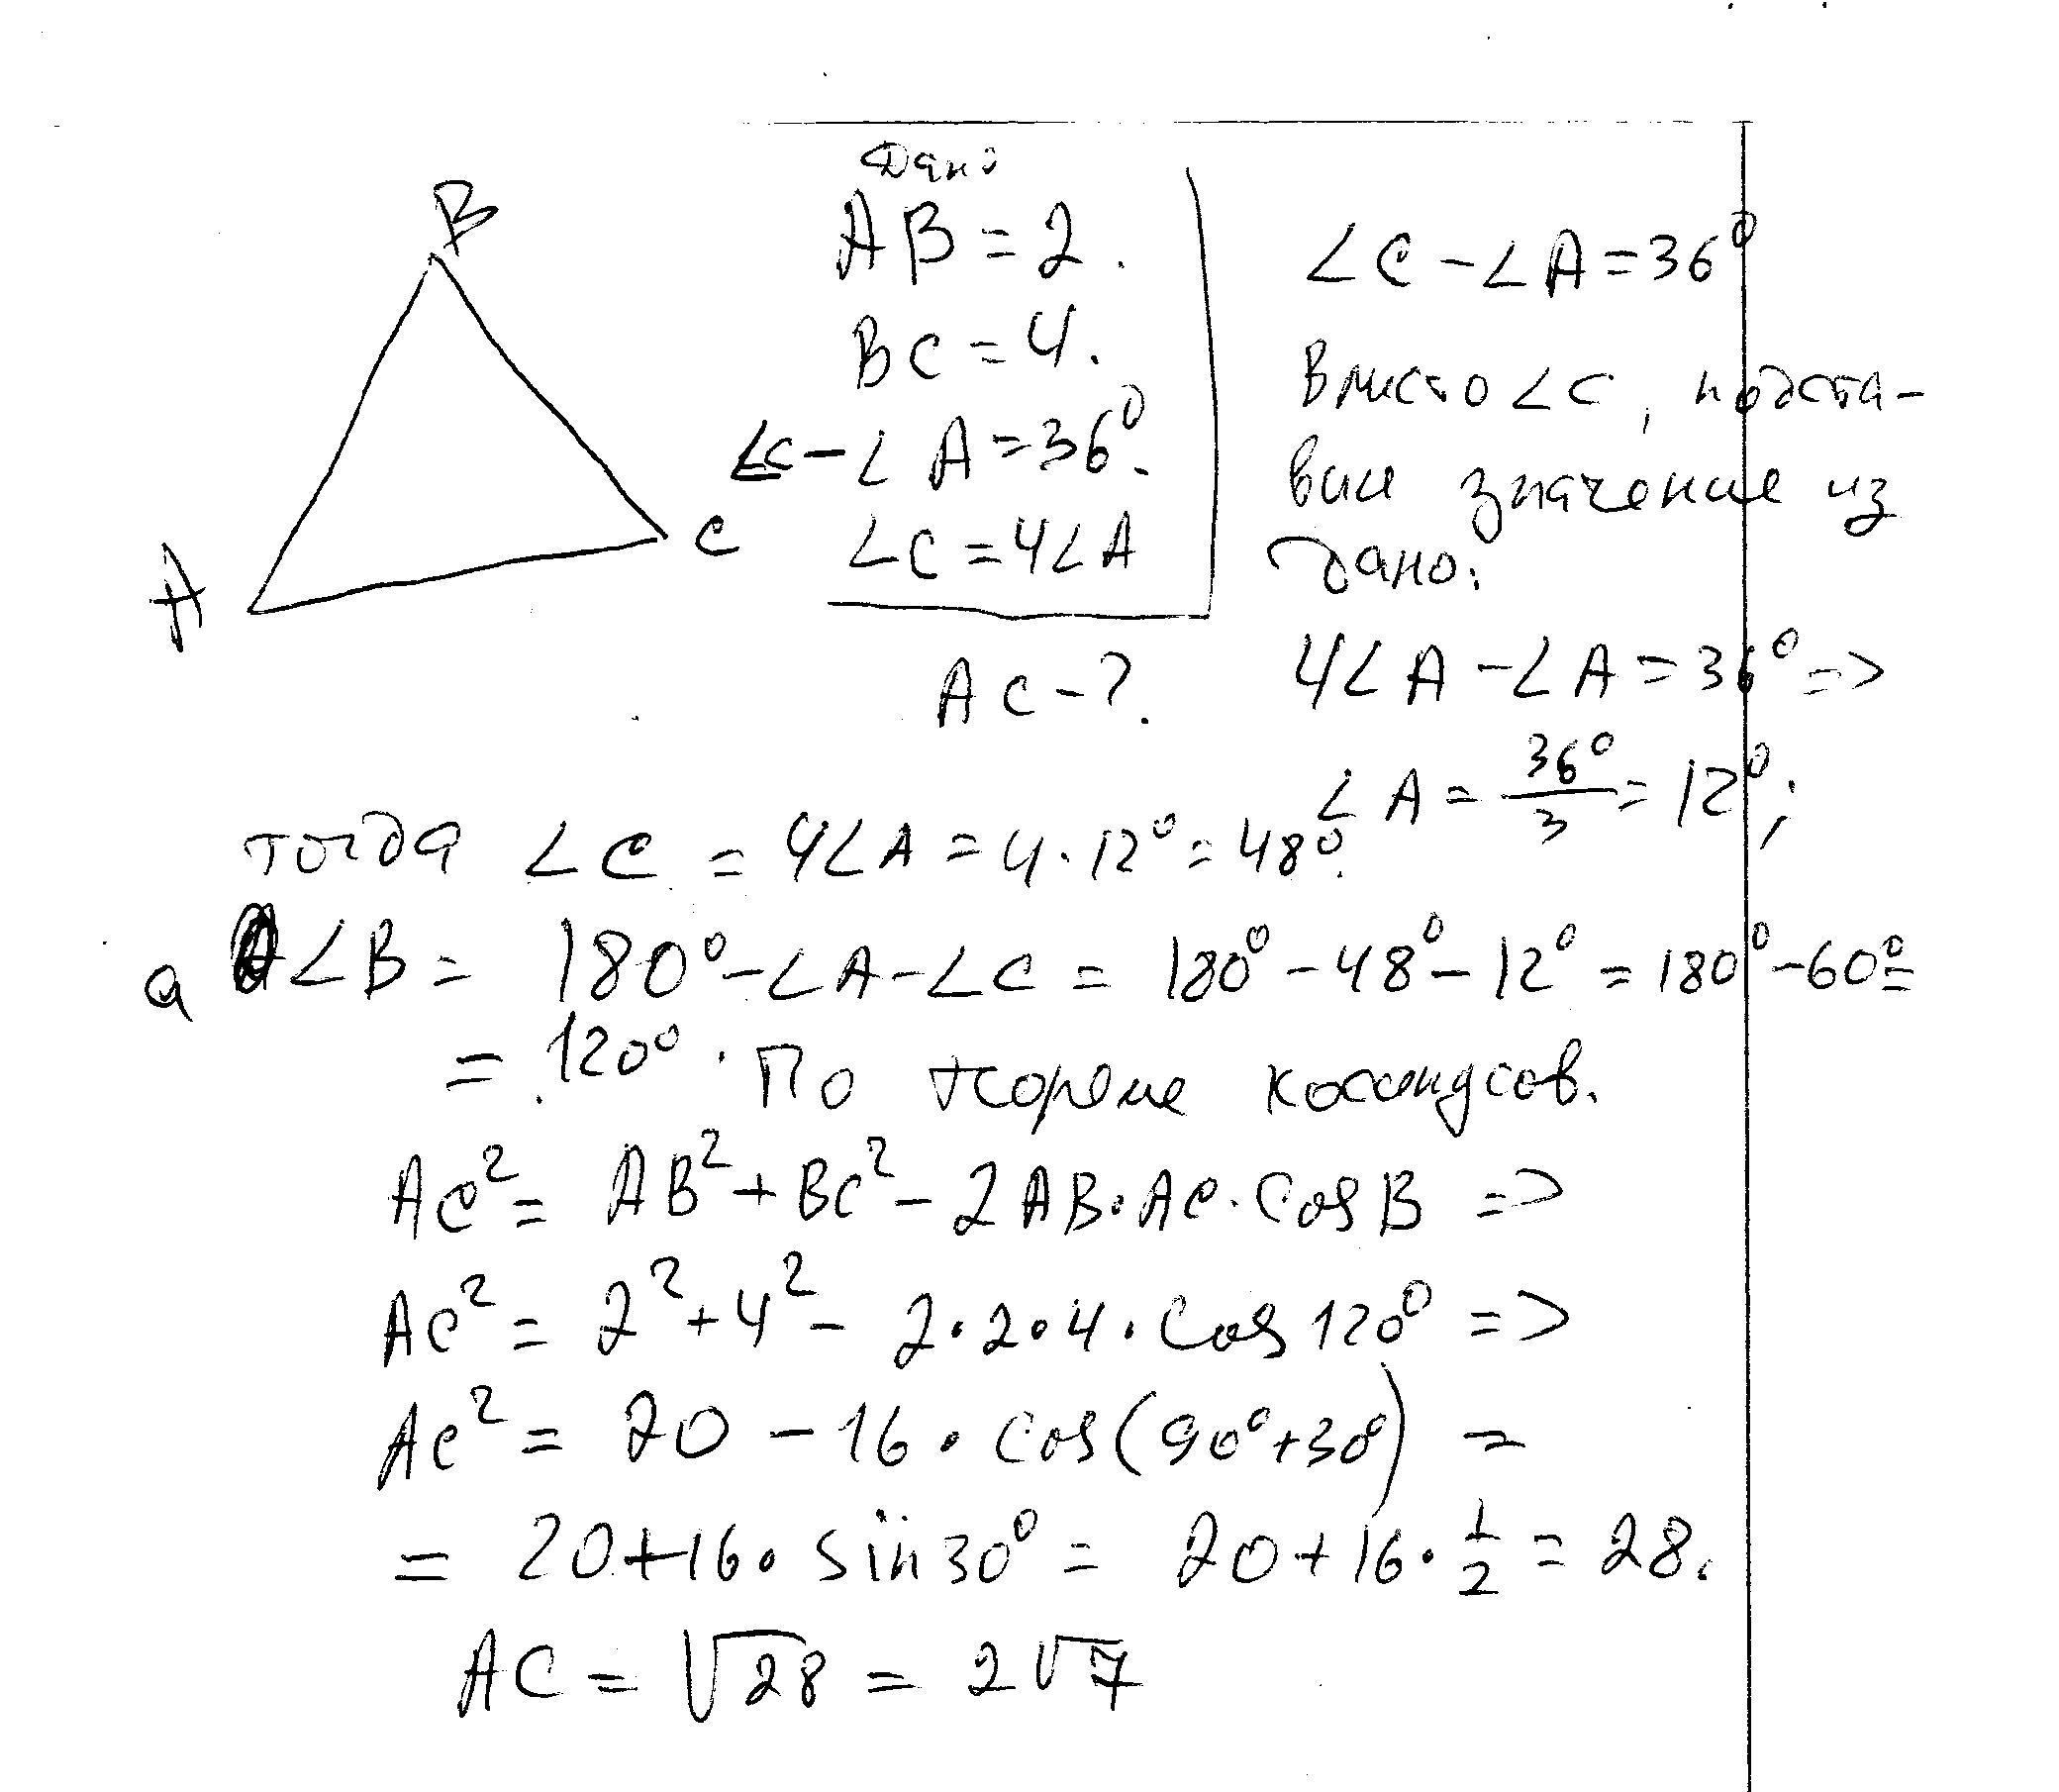 B
A
C
Дано
AB = 2.
BC = 4.
∠C - ∠A = 36°.
∠C = 4∠A
AC - ?
∠C - ∠A = 36°
Вместо ∠C, подста-
вим значение из
дано:
4∠A - ∠A = 36° =>
∠A = 36°/3 = 12°;
тогда ∠C = 4∠A = 4·12° = 48°.
а ∠B = 180° - ∠A - ∠C = 180° - 48° - 12° = 180° - 60° =
= 120°. По теореме косинусов.
AC² = AB² + BC² - 2AB·AC·cosB =>
AC² = 2² + 4² - 2·2·4·cos120° =>
AC² = 20 - 16·cos(90°+30°) =
= 20 + 16·sin30° = 20 + 16·1/2 = 28.
AC = √28 = 2√7